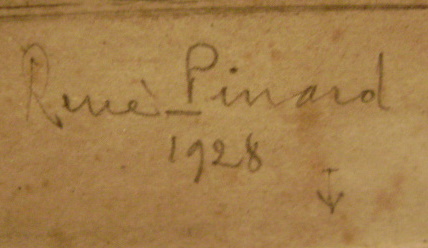 Renè Pinard
1928